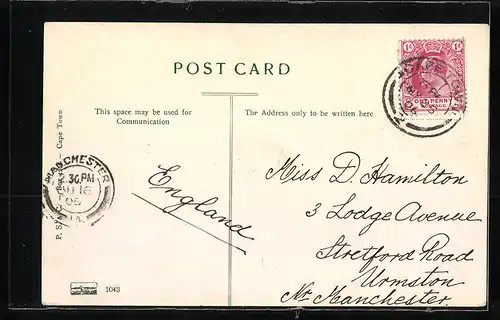 POST CARD
This space may be used for
Communication
The Address only to be written here
1d 1d
ONE PENNY
POSTAGE
MANCHESTER
.30 PM
JU 16
06
Cape Town
England
Miss D. Hamilton
3 Lodge Avenue
Stretford Road
Urmston
Nr. Manchester.
1043